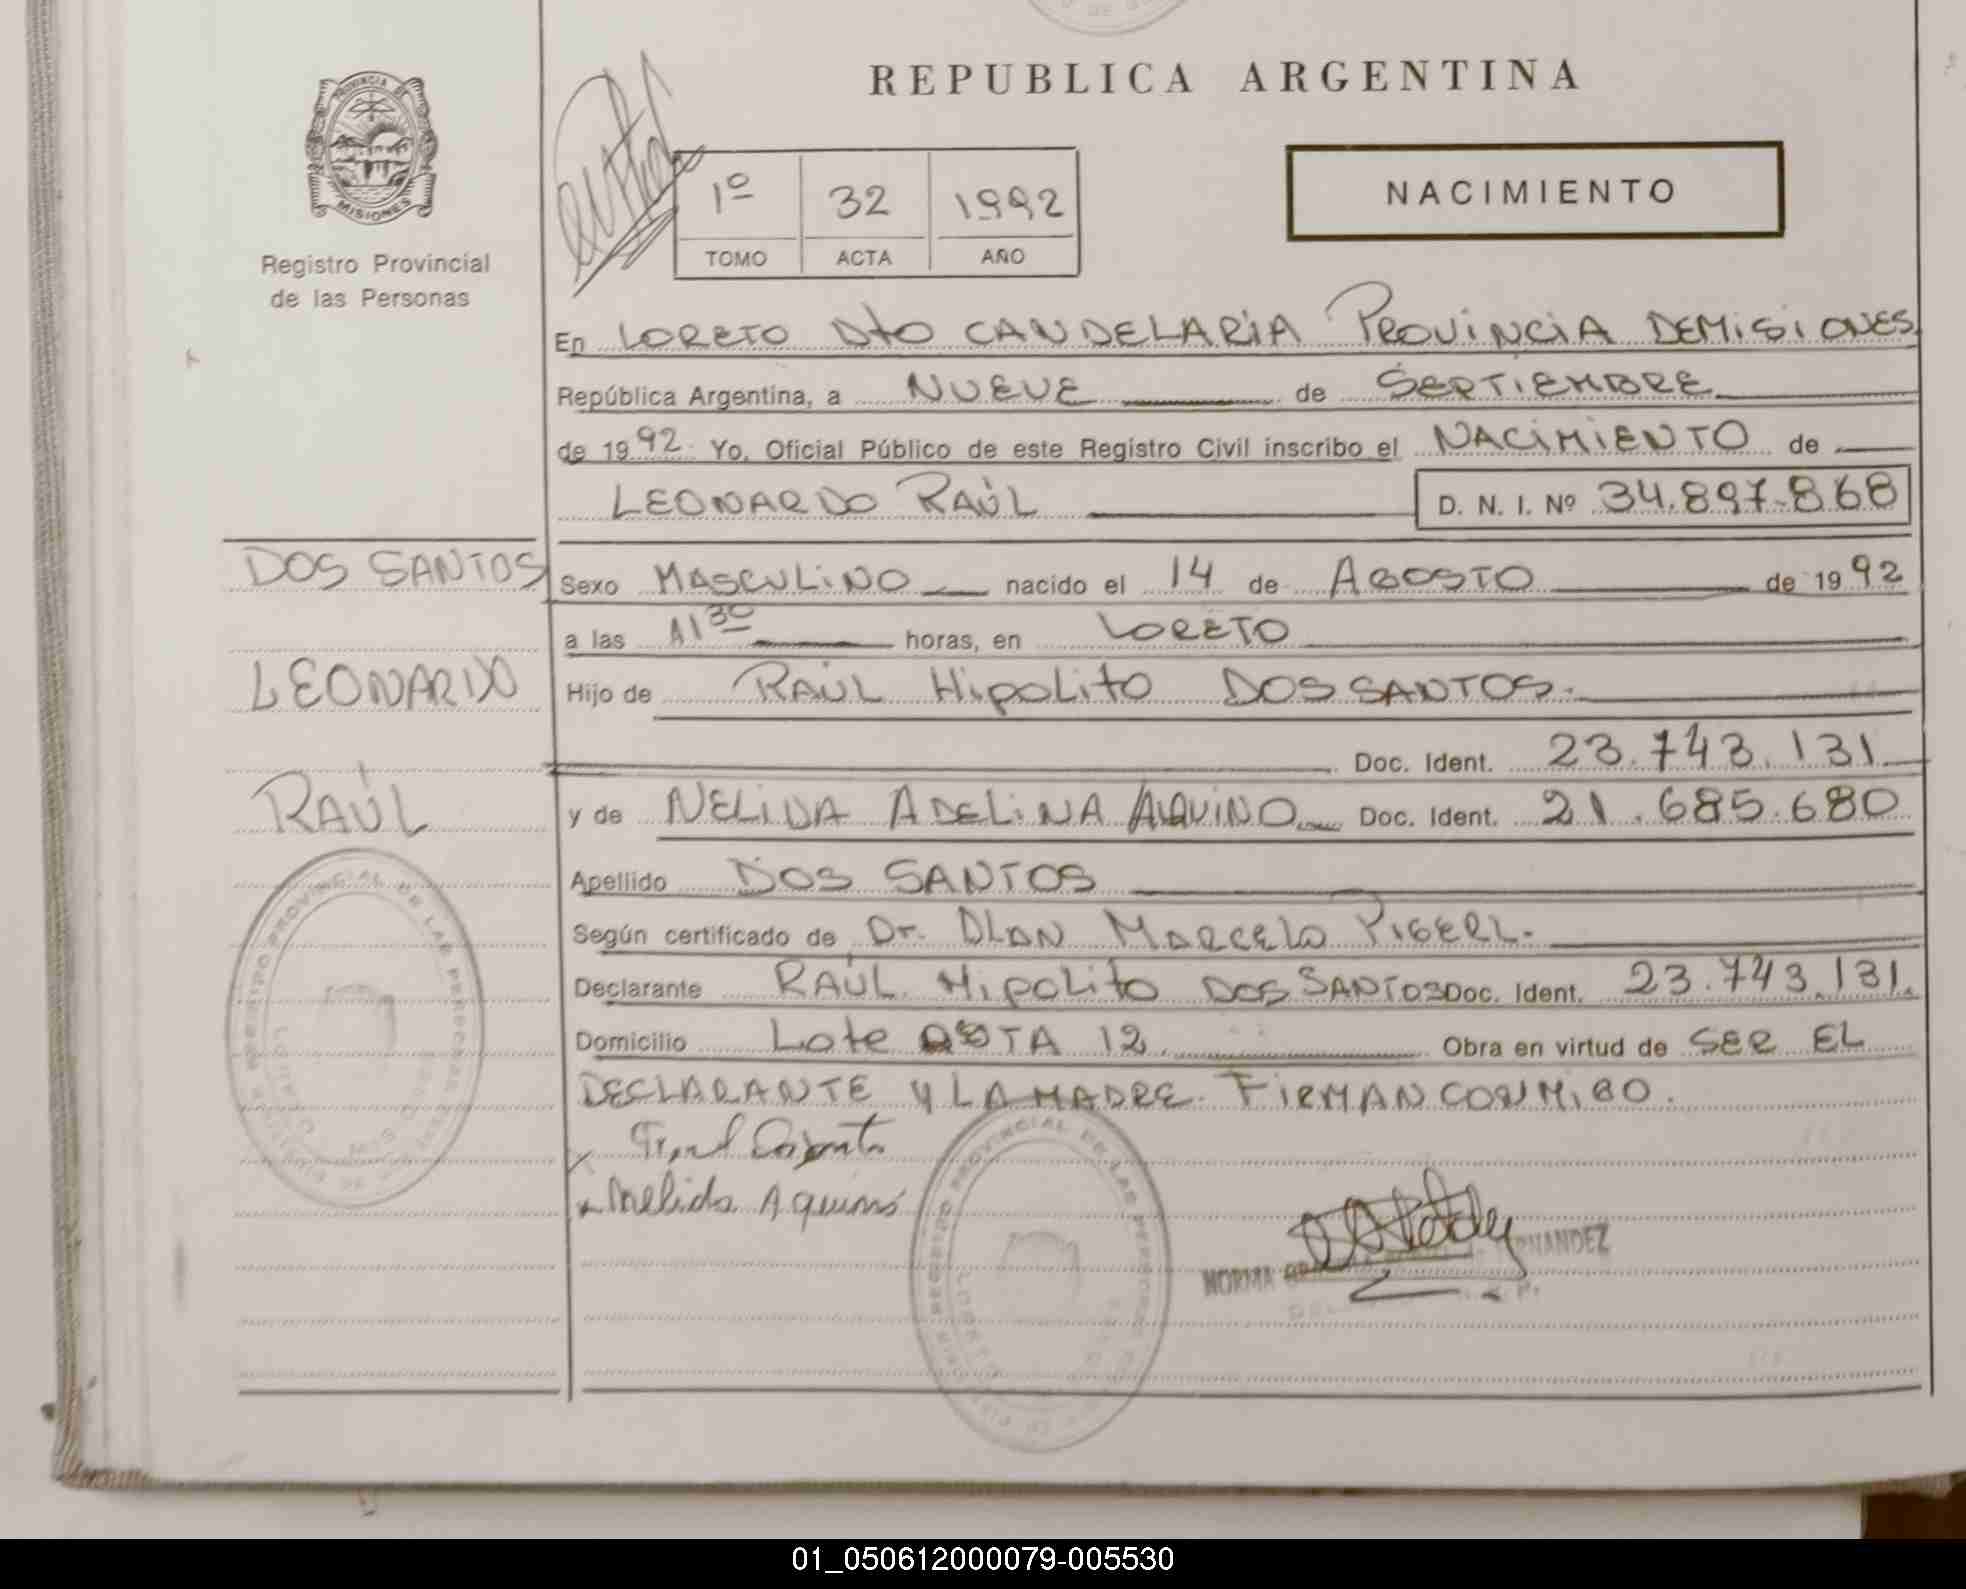 REPUBLICA ARGENTINA
PROVINCIA DE
MISIONES
Registro Provincial
de las Personas
1º 32 1992
TOMO ACTA AÑO
NACIMIENTO
En LORETO Dto CANDELARIA PROVINCIA DE MISIONES
República Argentina, a NUEVE de SEPTIEMBRE
de 1992. Yo, Oficial Público de este Registro Civil inscribo el NACIMIENTO de
LEONARDO RAÚL D. N. I. Nº 34.897.868
DOS SANTOS
LEONARDO
RAÚL
Sexo MASCULINO nacido el 14 de AGOSTO de 1992
a las 11 30 horas, en LORETO
Hijo de RAÚL HipoLito DOS SANTOS.
Doc. Ident. 23.743.131
y de NELIDA ADELINA AQUINO Doc. Ident. 21.685.680
Apellido DOS SANTOS
Según certificado de Dr. MARCELO
Declarante RAÚL HipoLito DOS SANTOS Doc. Ident. 23.743.131.
Domicilio Lote 12 Obra en virtud de SER EL
DECLARANTE Y LA MADRE FIRMAN CONMIGO.
Nelida Aquino
NORMA
REGISTRO PROVINCIAL DE LAS PERSONAS
LORETO
01_050612000079-005530